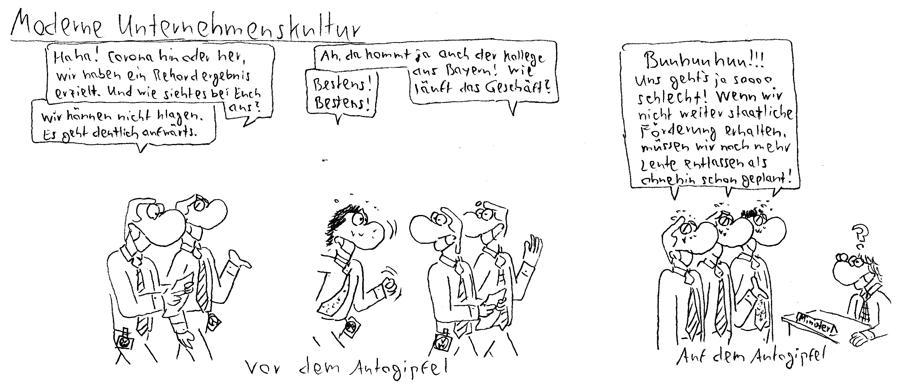 Moderne Unternehmenskultur
Haha! Corona hin oder her,
wir haben ein Rekordergebnis
erzielt. Und wie siehtes bei Euch
aus?
Wir können nicht klagen.
Es geht deutlich aufwärts.
Ah, da kommt ja auch der Kollege
aus Bayern! Wie
läuft das Geschäft?
Bestens!
Bestens!
Vor dem Autogipfel
Buuhuuhuu!!!
Uns geht's ja soooo
schlecht! Wenn wir
nicht weiter staatliche
Förderung erhalten,
müssen wir noch mehr
Leute entlassen als
ohnehin schon geplant!
?
Minister
Auf dem Autogipfel